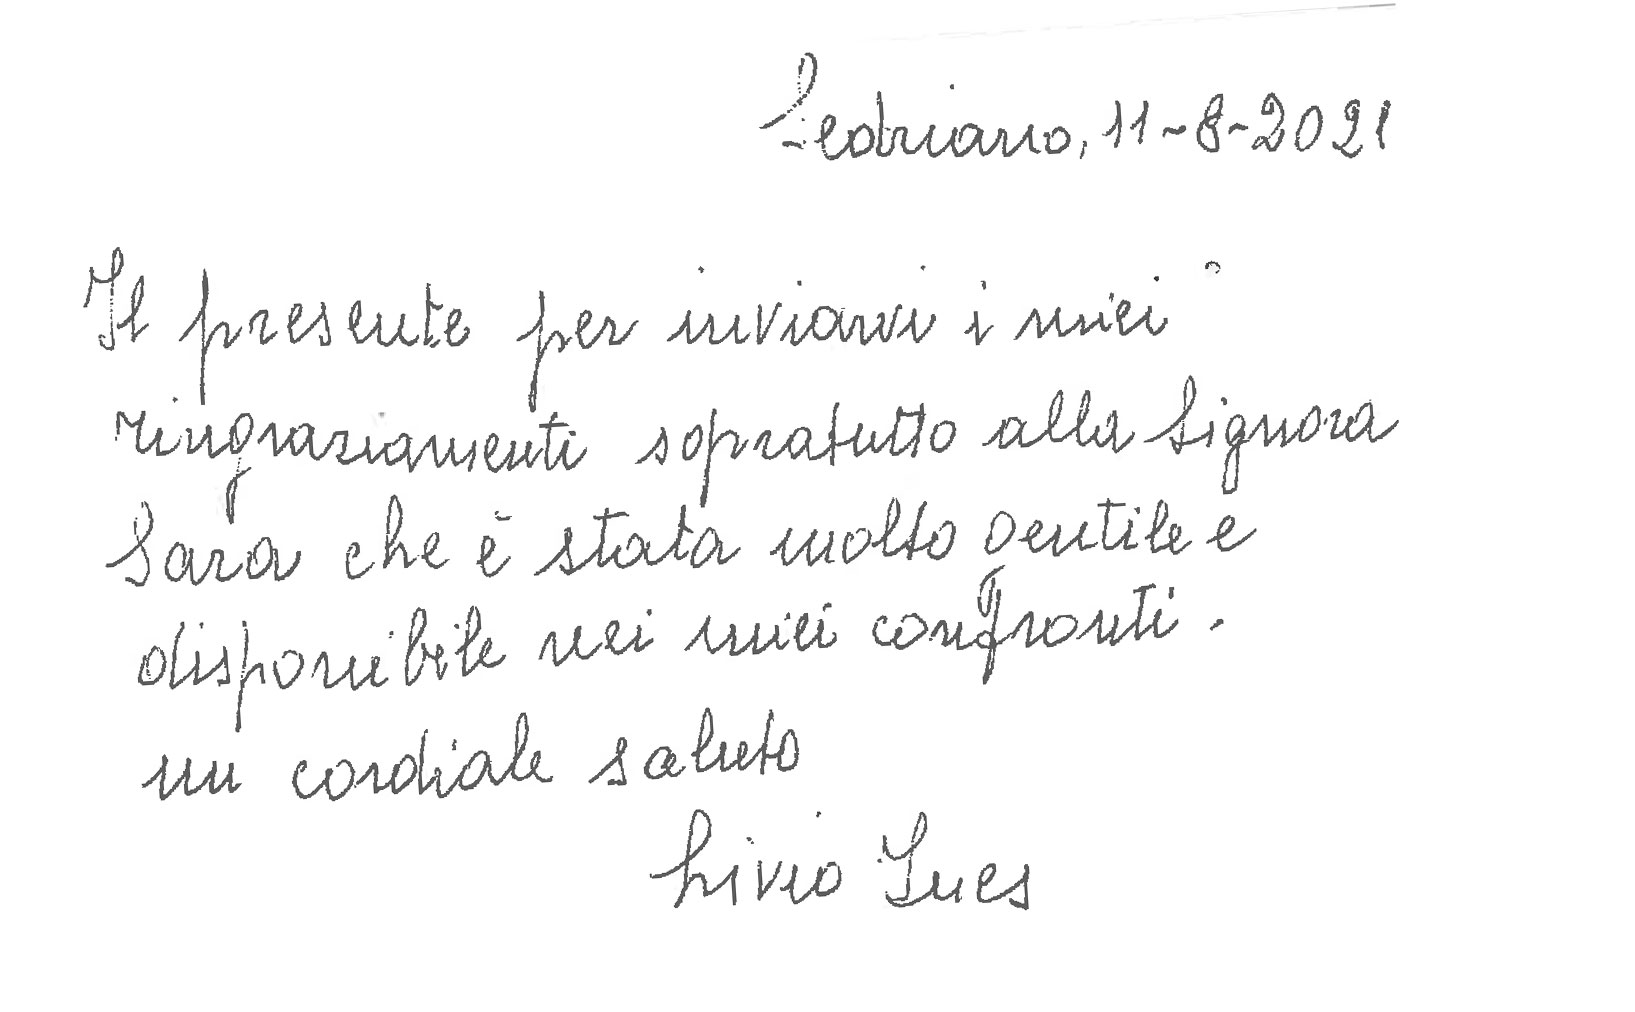 Sedriano, 11-8-2021
Il presente per inviarvi i miei
ringraziamenti sopratutto alla Signora
Sara che è stata molto gentile e
disponibile nei miei confronti.
un cordiale saluto
Livio Ines